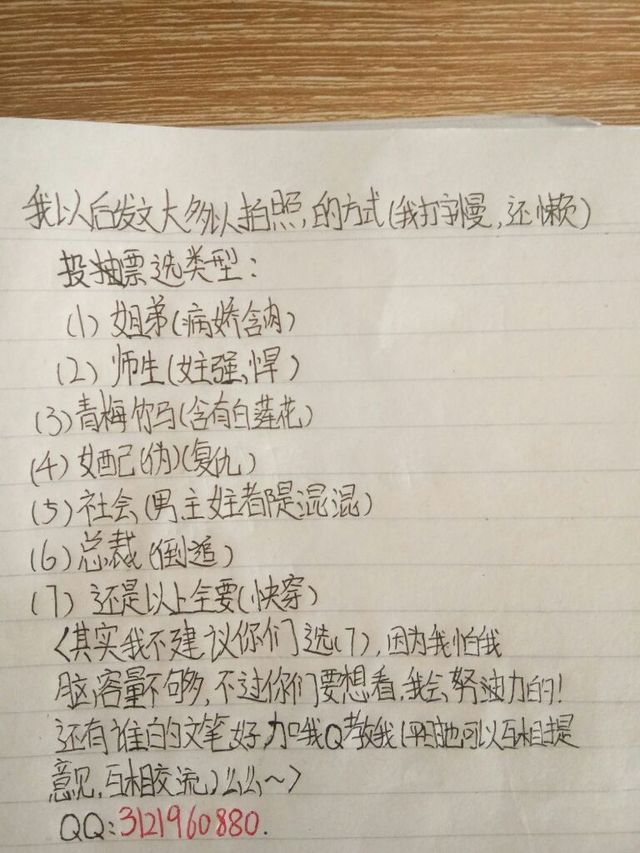 我以后发文大多以拍照的方式(我打字慢,还懒)
投抽票选类型:
(1)姐弟(病娇含肉)
(2)师生(女主强,悍)
(3)青梅竹马(含有白莲花)
(4)女配(伪)(复仇)
(5)社会(男主女主都是混混)
(6)总裁(倒追)
(7)还是以上全要(快穿)
〈其实我不建议你们选(7),因为我怕我
脑容量不够,不过你们要想看,我会努油力的!
还有谁的文笔好,加我Q教我(平时也可以互相提
意见,互相交流)么么~〉
QQ:3121960880.